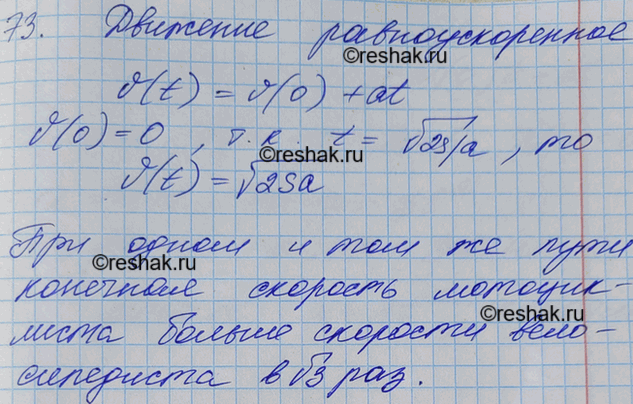 73. Движение равноускоренное
©reshak.ru
ϑ(t) = ϑ(0) + at
ϑ(0) = 0 , т.к. t = √2s/a , то
©reshak.ru
ϑ(t) = √2sa
При одном и том же пути
©reshak.ru
конечная скорость мотоцик-
©reshak.ru
листа больше скорости вело-
сипедиста в √3 раз.